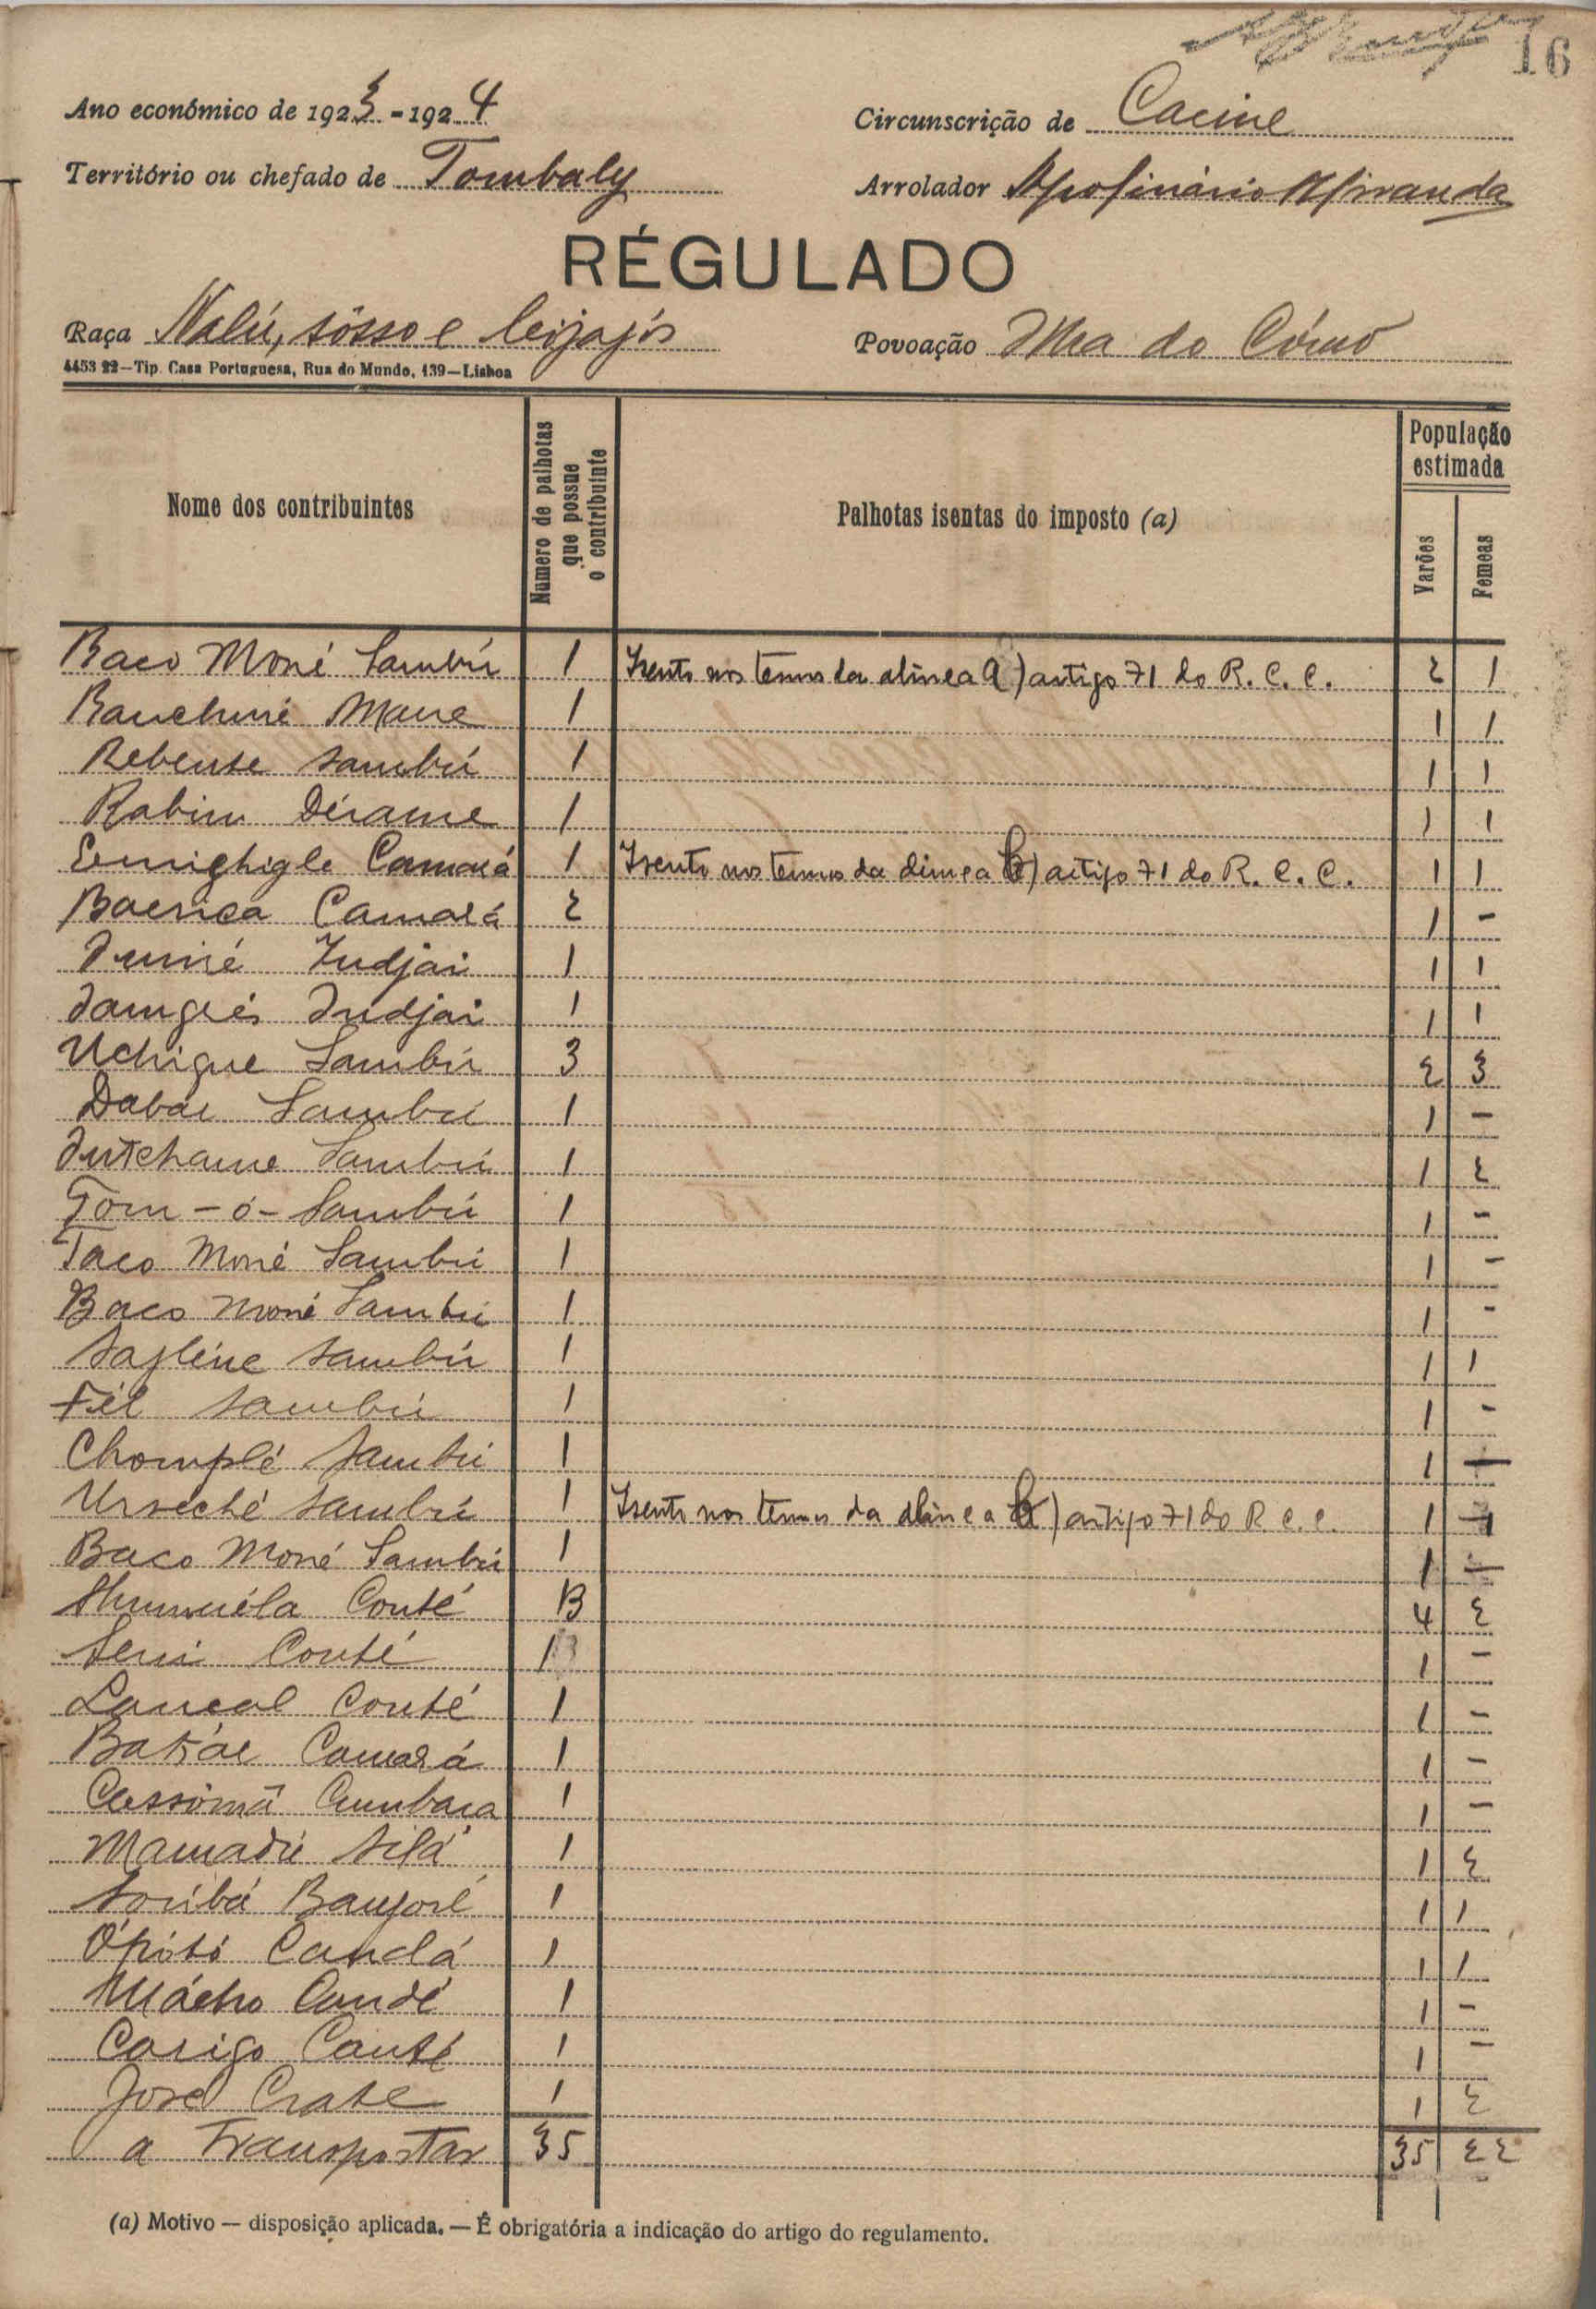 16
Ano económico de 1923-1924 Circunscrição de Cacine
Território ou chefado de Tombaly Arrolador Apolinário Miranda
RÉGULADO
Raça Nalú, sôsso e Povoação Ilha do Cómo
4453 22—Tip. Casa Portuguesa, Rua do Mundo, 139—Lisboa
Nome dos contribuintes Numero de palhotas que possue o contribuinte Palhotas isentas do imposto (a) População estimada Varões Femeas
Baco Moné Sambú 1 Isento nos termos da alinea a) artigo 71 do R. C. C. 2 1
Mane 1 1 1
Rebense Sambú 1 1 1
Rabim Dérame 1 1 1
Camará 1 Isento nos termos da alinea b) artigo 71 do R. C. C. 1 1
Camará 2 1 -
Indjai 1 1 1
Indjai 1 1 1
Uchigue Sambú 3 2 3
Dabae Sambú 1 1 -
Intchame Sambú 1 1 2
Tom-ó-Sambú 1 1 -
Taco Moné Sambú 1 1 -
Baco Moné Sambú 1 1 -
Sambú 1 1 1
Fél Sambú 1 1 -
Chomplé Sambú 1 1 -
Urseché Sambú 1 Isento nos termos da alinea b) artigo 71 do R. C. C. 1 1
Baco Moné Sambú 1 1 -
Conté 3 4 2
Seni Conté 1 1 -
Lancal Conté 1 1 -
Camará 1 1 -
Cumbaça 1 1 -
Mamadú Silá 1 1 2
Soribá 1 1 1
1 1 1
Candé 1 1 -
Carigo Canté 1 1 -
José Crate 1 1 2
a Transportar 35 35 22
(a) Motivo — disposição aplicada. — É obrigatória a indicação do artigo do regulamento.